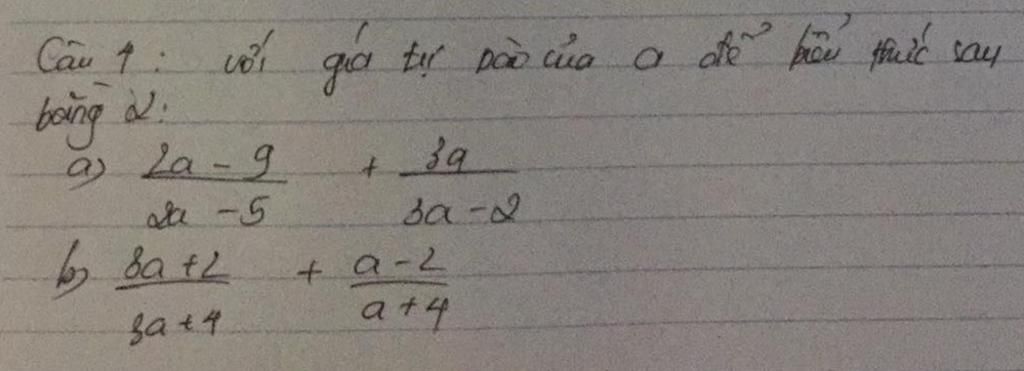 Câu 1: với giá trị nào của a để biểu thức sau
bằng 2:
a) \frac{2a - 9}{2a - 5} + \frac{3a}{3a - 2}
b) \frac{3a + 2}{3a + 4} + \frac{a - 2}{a + 4}